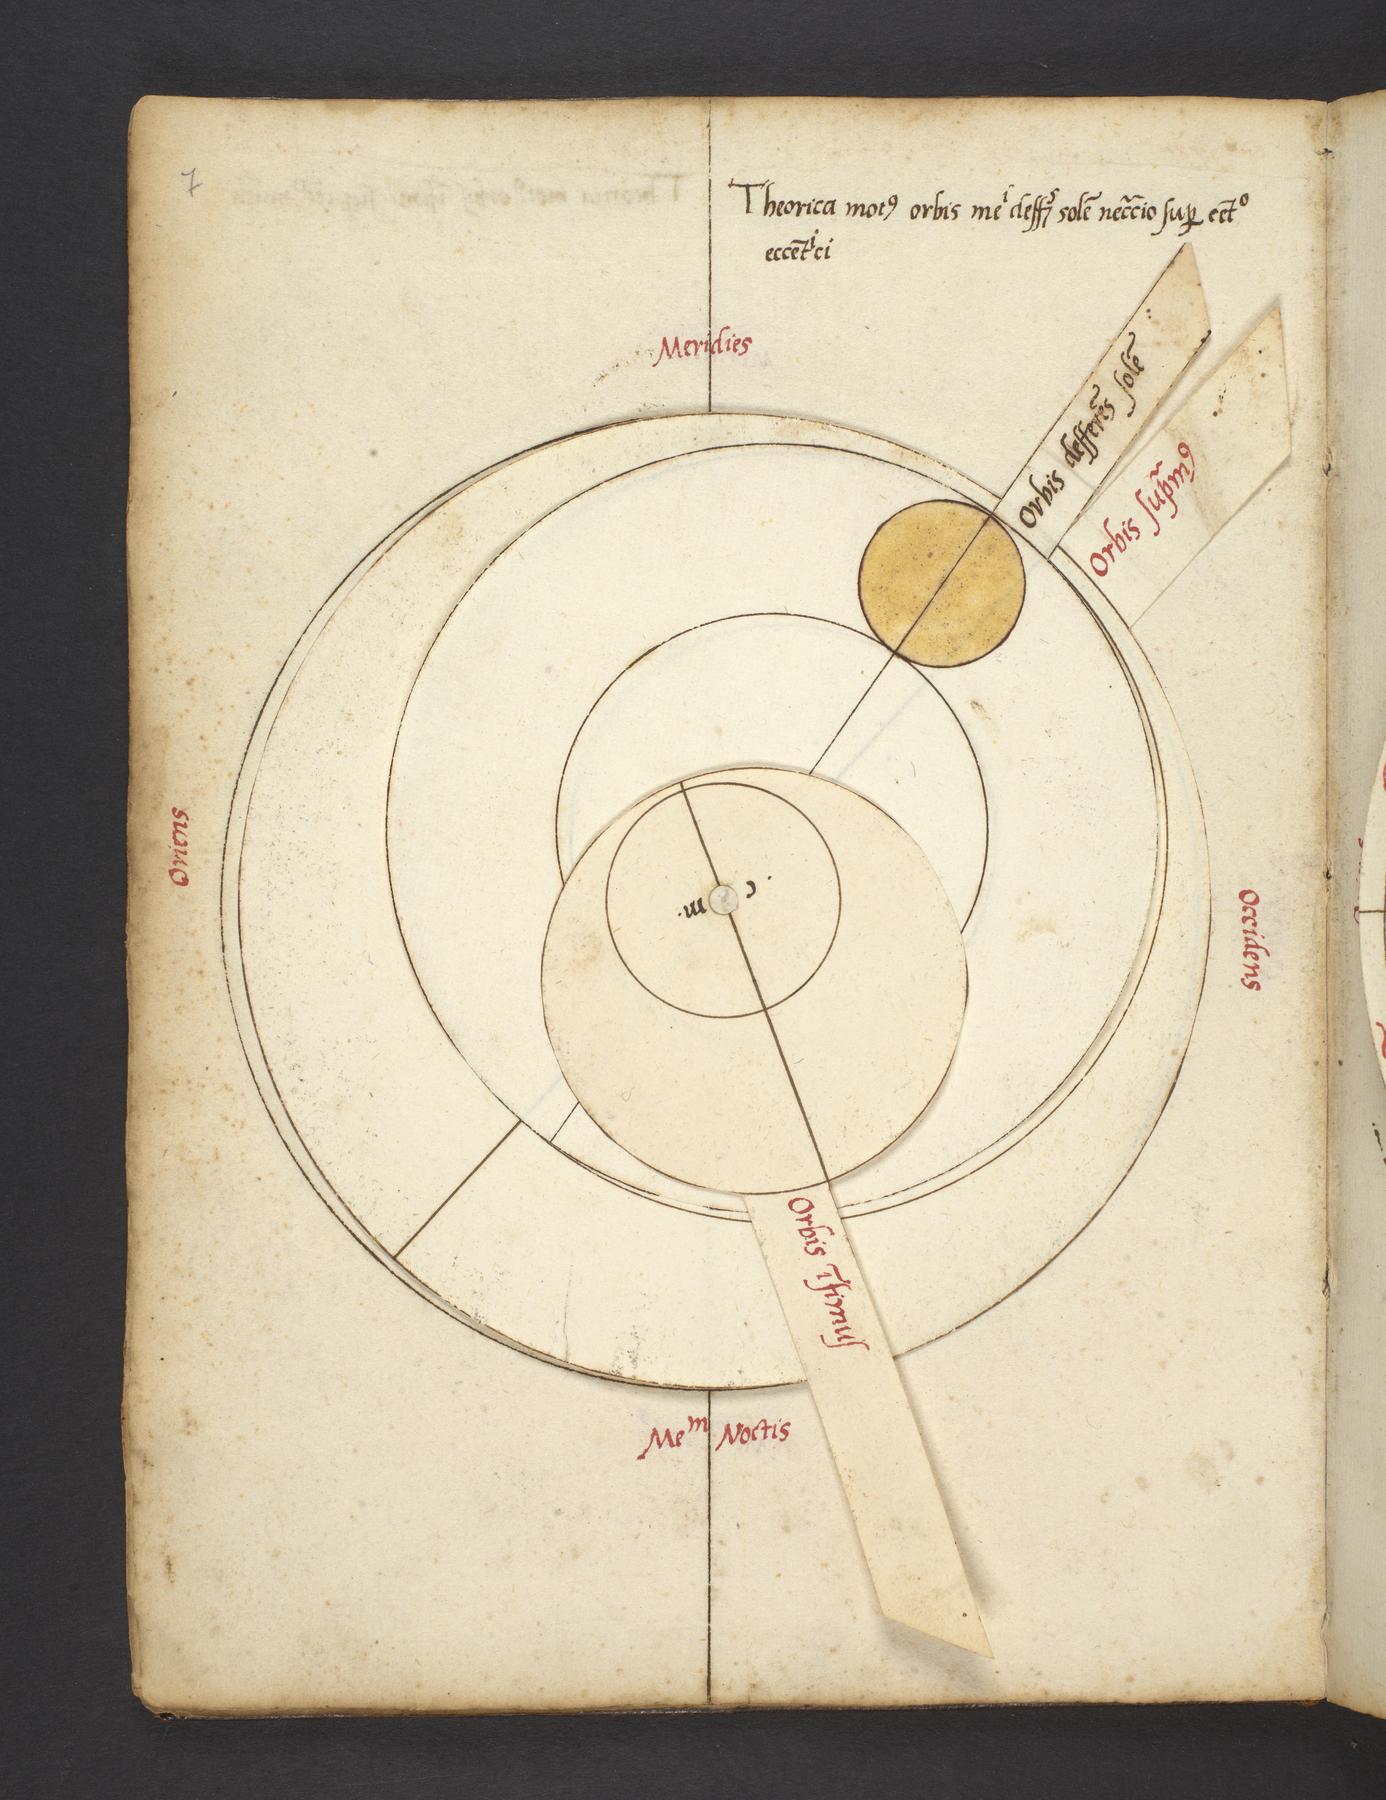 7
Theorica motꝯ orbis meⁱ deffᵗˢ solē necc̄io suꝑ cēt°
eccētⁱci
Meridies
Orbis defferēs solē
Orbis sup̄mꝯ
Oriens
m
c
Occidens
Orbis ĩfimus
Meᵐ Noctis